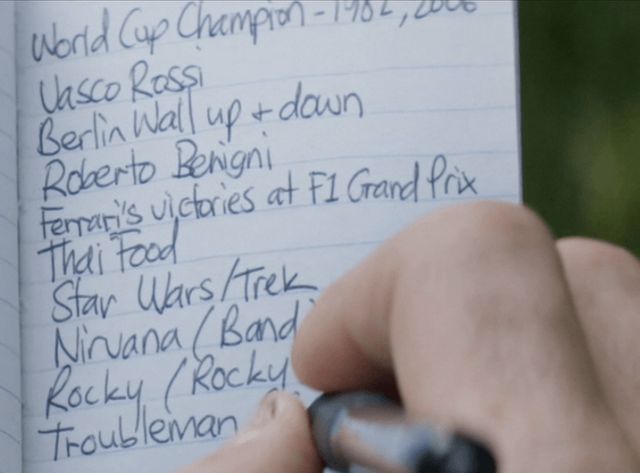 World Cup Champion - 1982, 2006
Vasco Rossi
Berlin Wall up + down
Roberto Benigni
Ferrari's victories at F1 Grand Prix
Thai Food
Star Wars/Trek
Nirvana (Band)
Rocky (Rocky
Troubleman